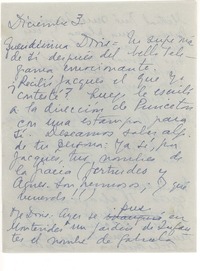 Diciembre 3.
Queridísima Doris - No supe más
de ti después del bello tele-
grama emocionante.
¿Recibió Jacques el que yo
contesté? Luego le escribí
a la dirección de Princeton
con una estampa para
ti. Deseamos saber algo
de tu persona: Ya sé, por
Jacques, tus novelas de
la gracia (
Ayer. Son hermosos, y qué
buenos!!!)
Oye Doris: Ayer se puso en
Montevideo un jardín de Infan-
tes el nombre de Gabriela